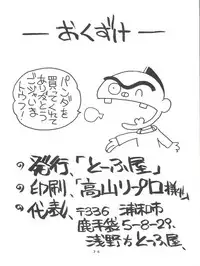 — おくずけ —
パンダを
買ってくれて
ありがとう
ございま
トウフ!
◦発行、「とーふ屋」
◦印刷、「高山リープロ様
◦代表、〒336 浦和市
鹿手袋5-8-29.
浅野方とーふ屋、